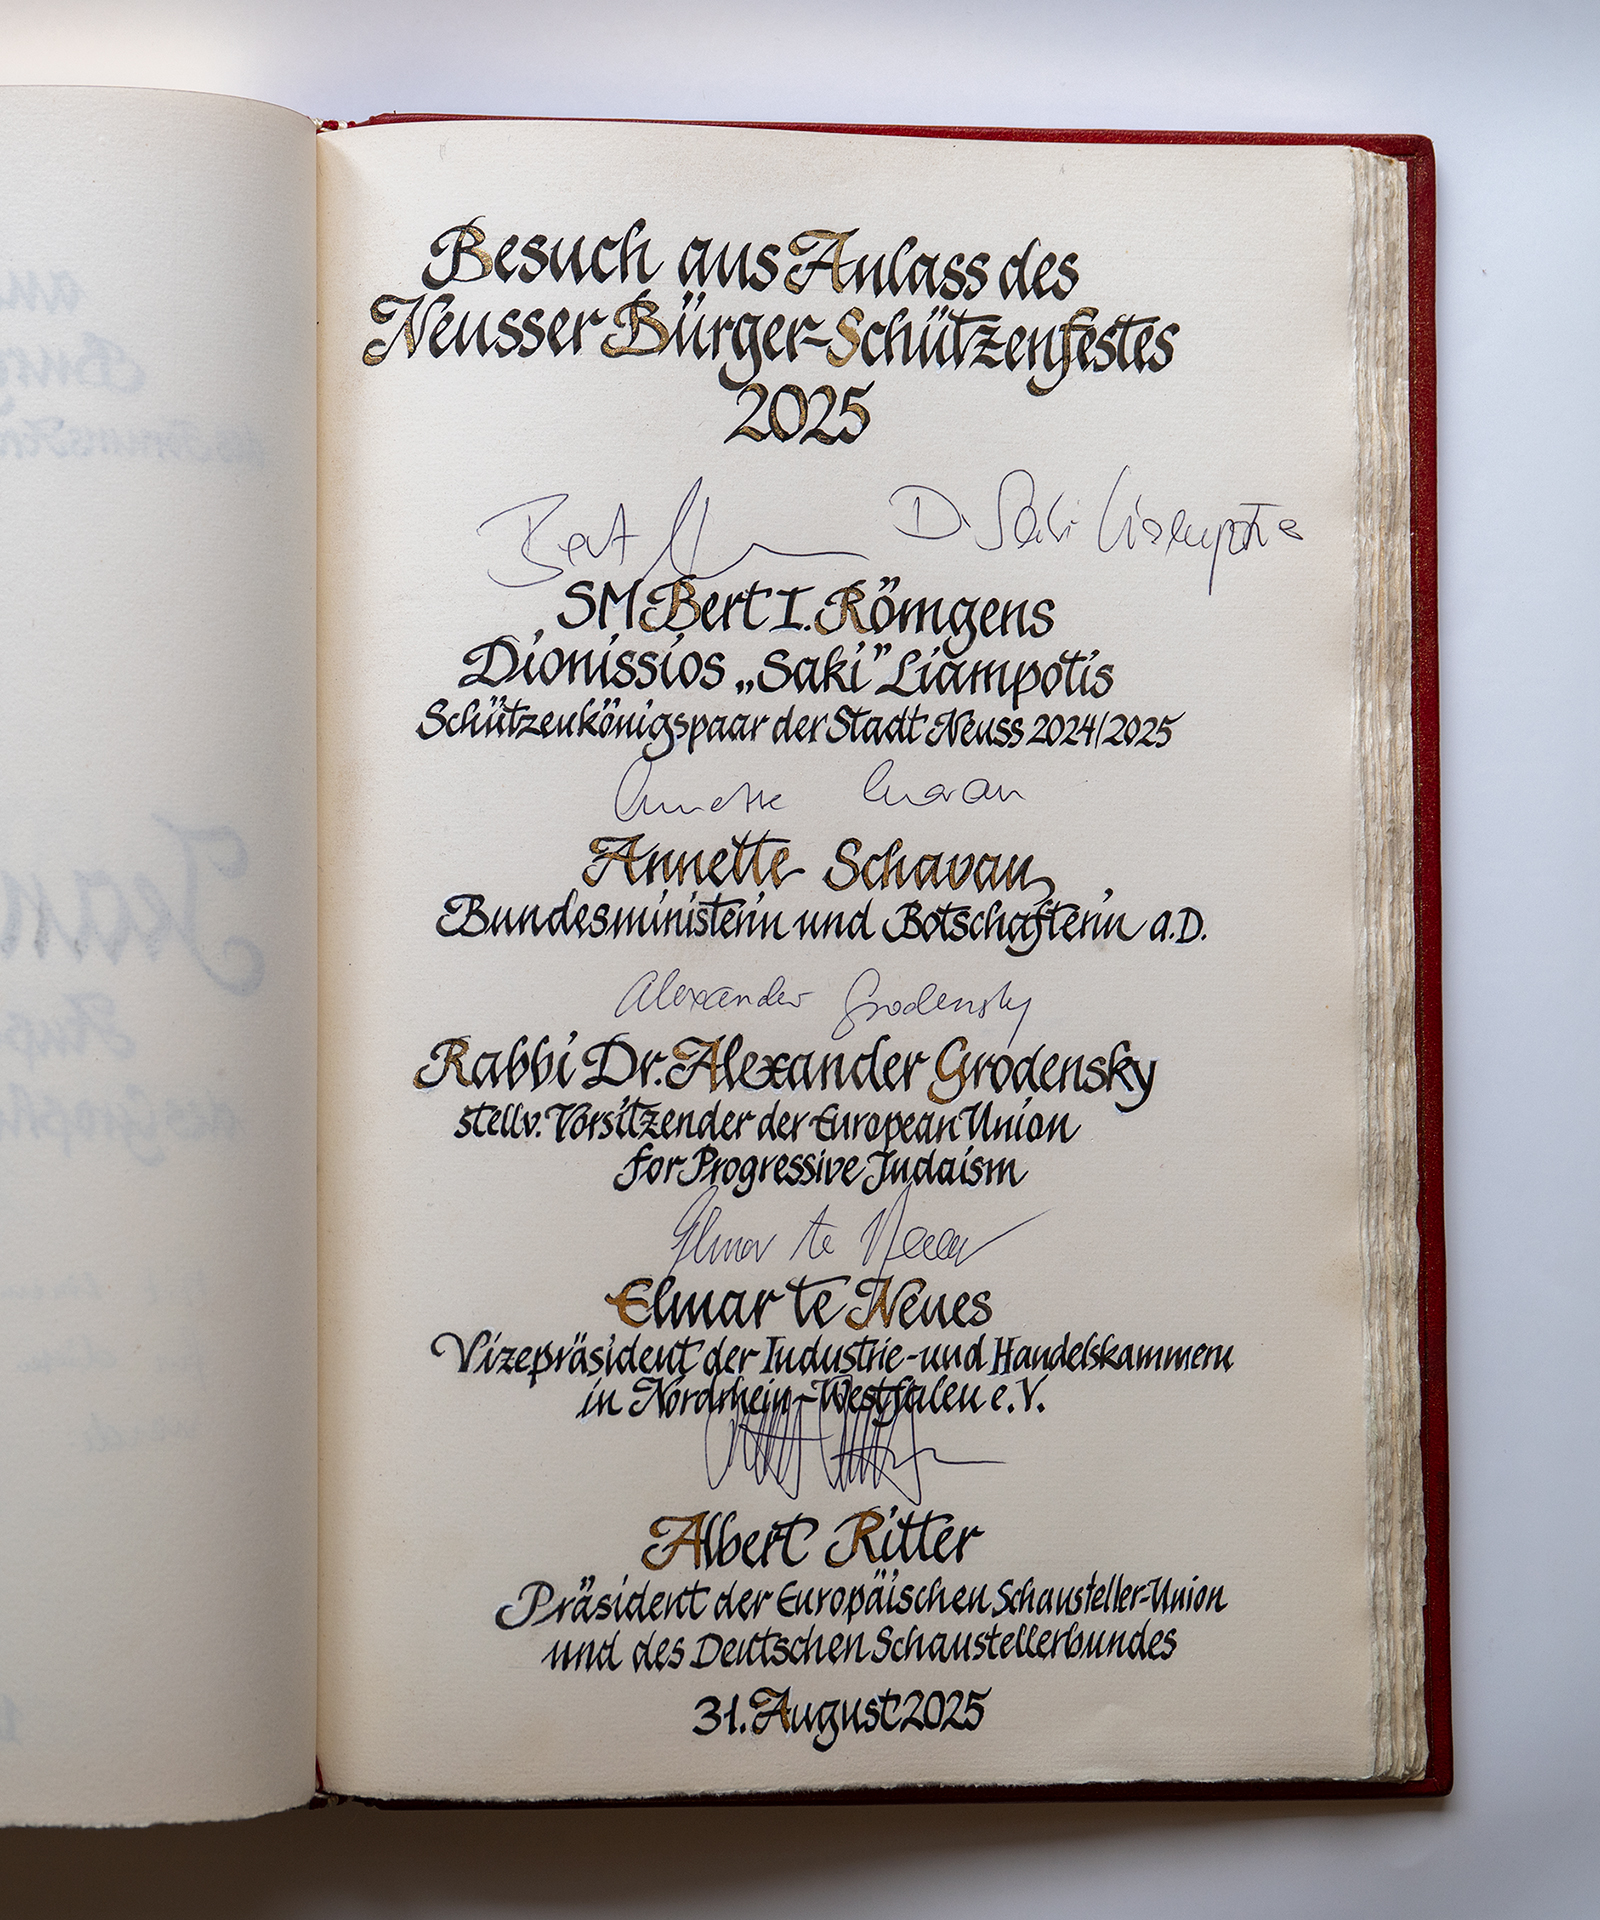 Besuch aus Anlass des
Neusser Bürger-Schützenfestes
2025
Bert
D. Saki Liampotis
SM Bert I. Römgens
Dionissios „Saki” Liampotis
Schützenkönigspaar der Stadt Neuss 2024/2025
Annette Schavan
Annette Schavan
Bundesministerin und Botschafterin a.D.
Alexander Grodensky
Rabbi Dr. Alexander Grodensky
stellv. Vorsitzender der European Union
for Progressive Judaism
Elmar te Neues
Elmar te Neues
Vizepräsident der Industrie-und Handelskammern
in Nordrhein-Westfalen e.V.
Albert Ritter
Präsident der Europäischen Schausteller-Union
und des Deutschen Schaustellerbundes
31. August 2025